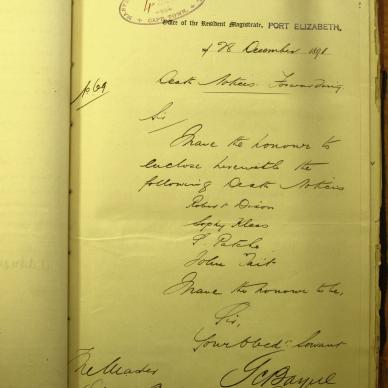 CAPE TOWN
Office of the Resident Magistrate, PORT ELIZABETH,
28 December 1891
No 69
Death Notices Forwarding
Sir
I have the honour to
enclose herewith the
following Death Notices
Robert Dixon
Sophy Klaas
John Tait
I have the honour to be,
Sir,
Your Obedt Servant
The Master